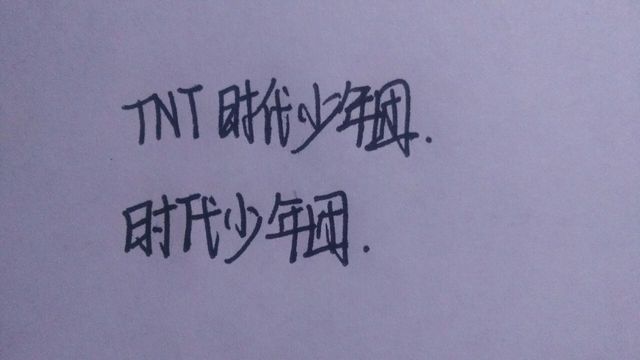 TNT时代少年团.
时代少年团.